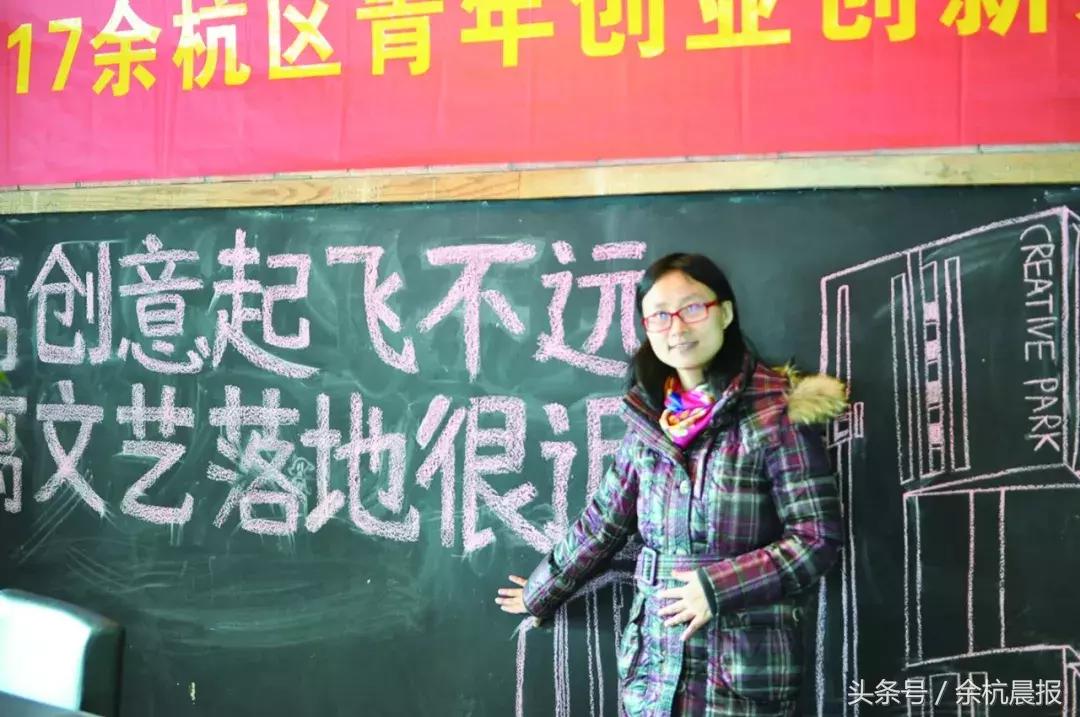 17余杭区青年创业创新大
高创意起飞不远
离文艺落地很近
CREATIVE PARK
头条号 / 余杭晨报